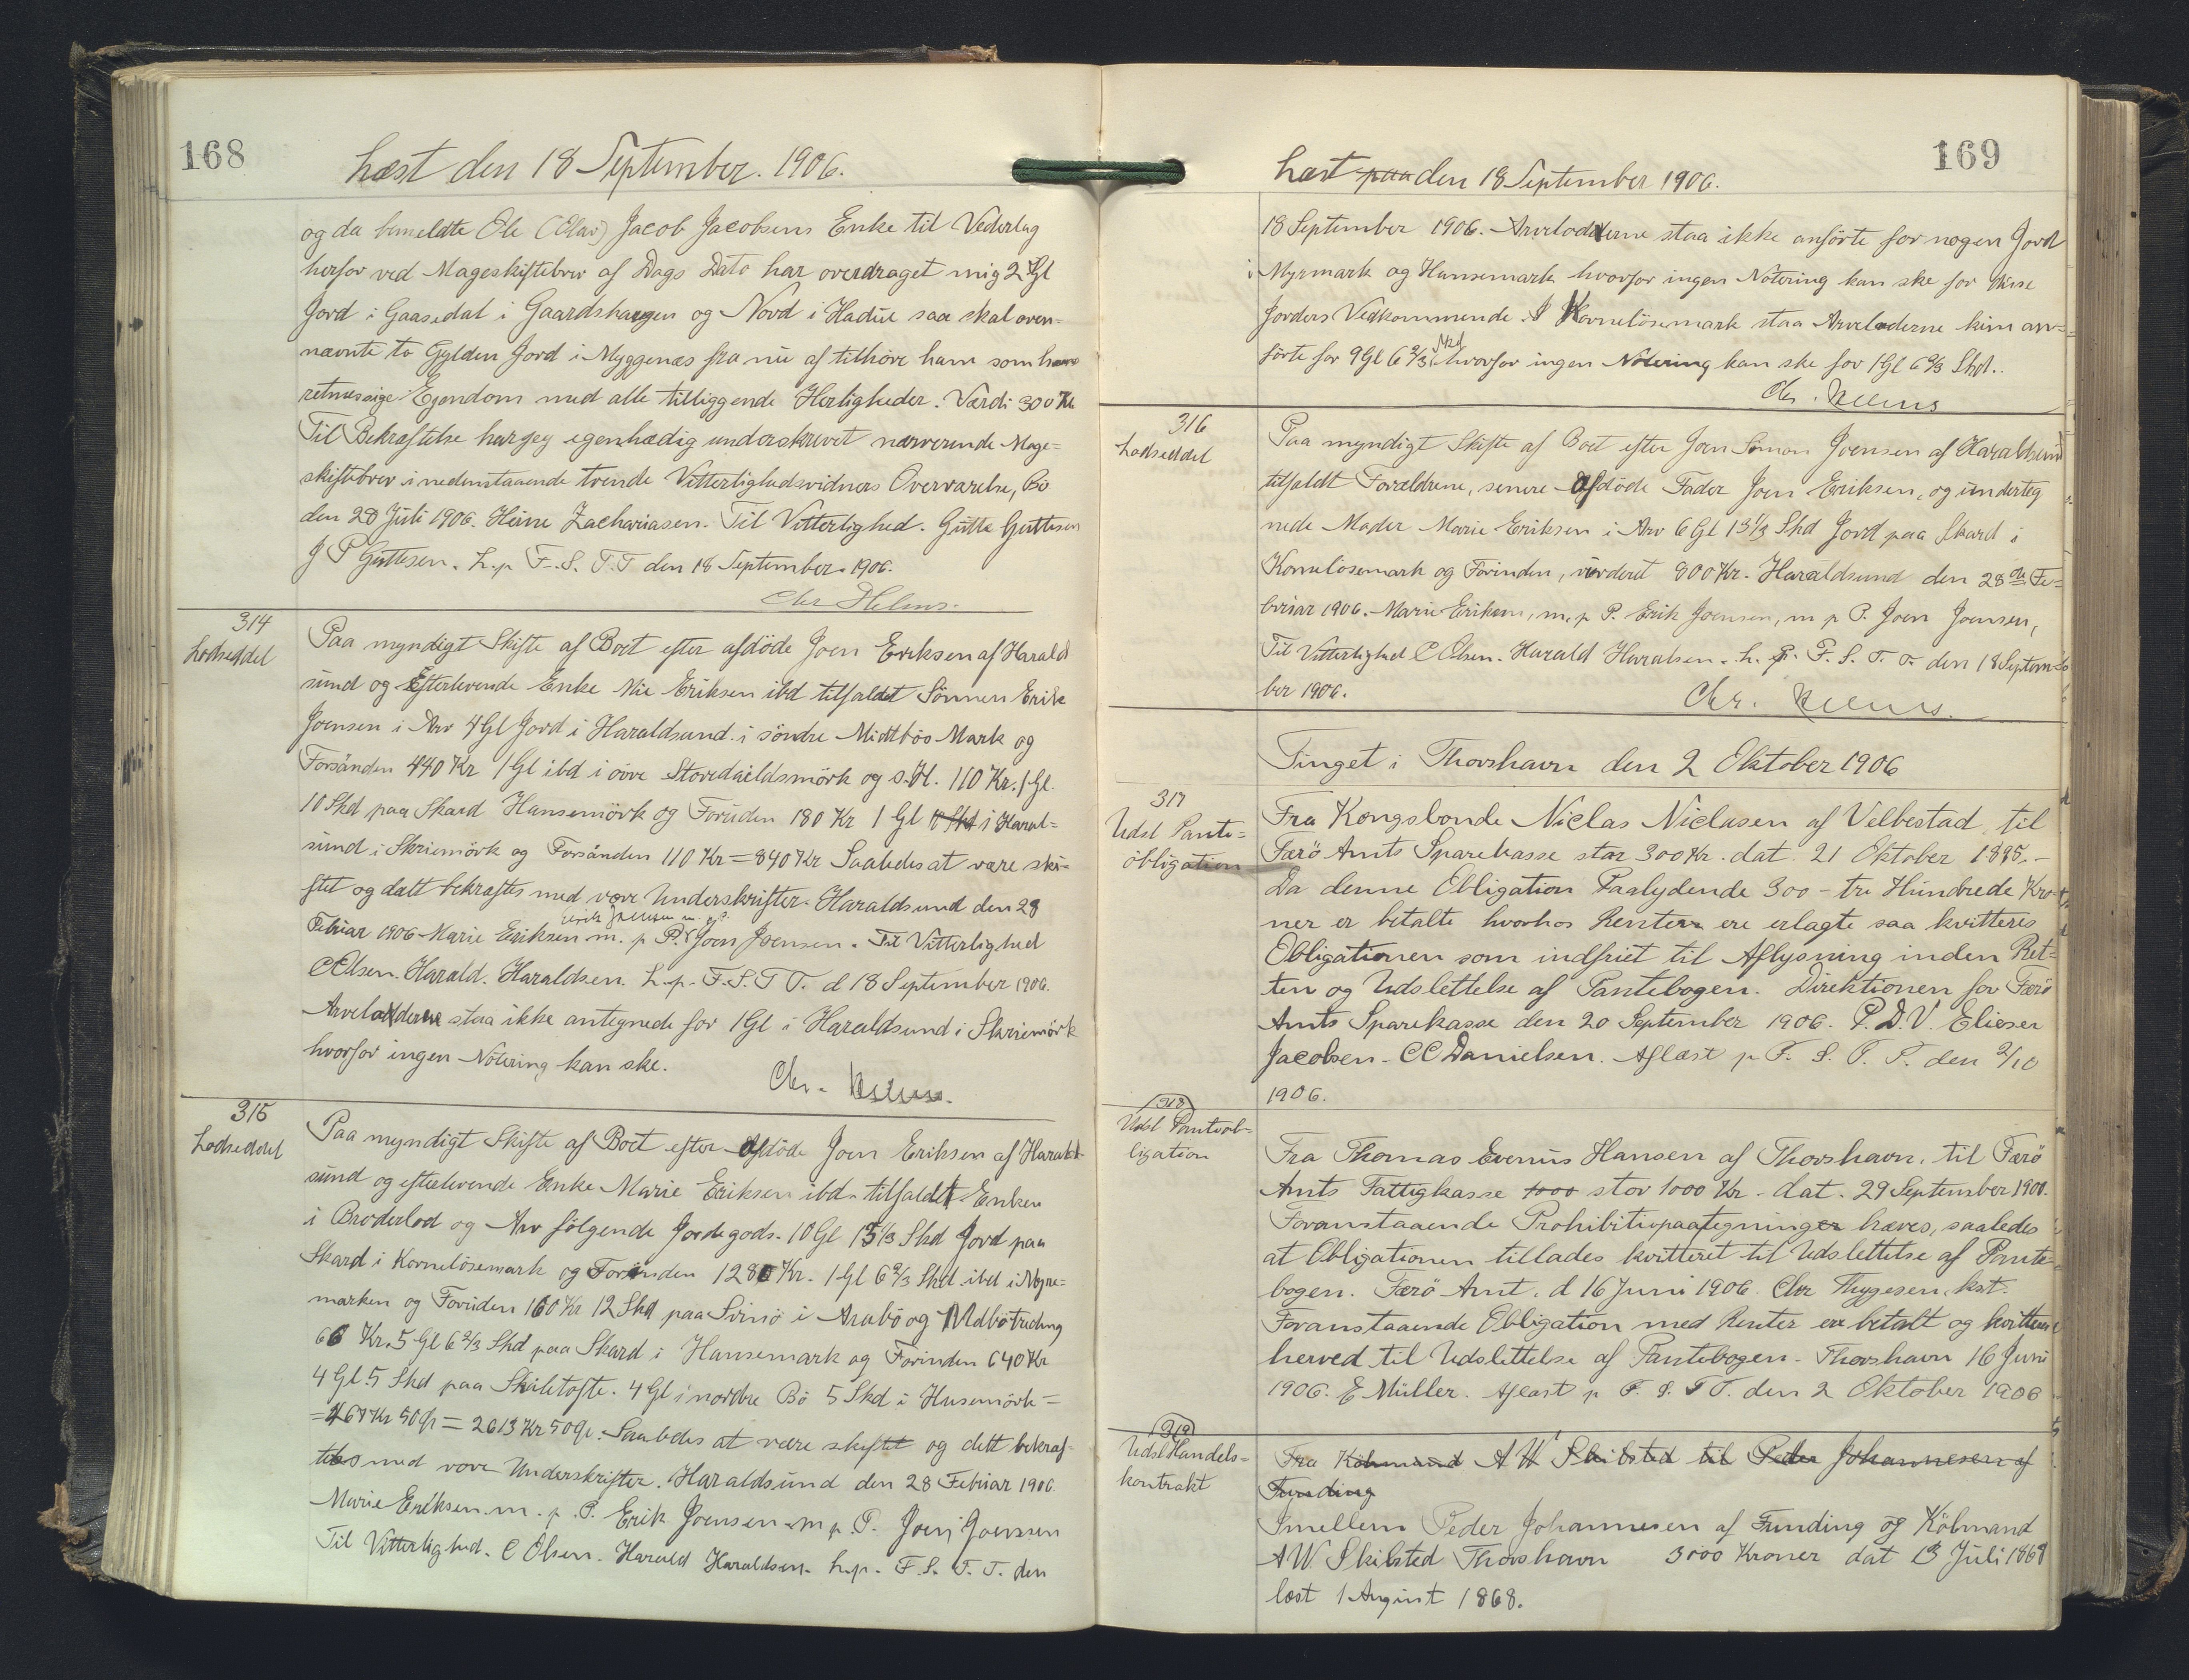 168
Læst den 18 September. 1906.
og da bemeldte Ole (Olav) Jacob Jacobsens Enke til Vederlag
herfor ved Mageskiftebrev af Dags Dato har overdraget mig 2 Gl
Jord i Gaasedal i Gaardshaugen og Nord i Hadue saa skal oven-
nævnte to Gylden Jord i Myggenæs fra nu af tilhøre ham som hans
retmæssige Ejendom med alle tilliggende Herligheder. Værdi 300 Kr
Til Bekræftelse har jeg egenhædig underskrevet nærværende Mage-
skiftebrev i nedenstaaende tvende Vitterlighedsvidners Overværelse, Bö
den 20 Juli 1906. Heine Zachariasen. Til Vitterlighed. Gutte Guttesen
J P Guttesen. L. p. F. S. T. T den 18 September. 1906.
Chr Helms.
314
Lodseddel
Paa myndigt Skifte af Boet efter afdöde Joen Eriksen af Harald
sund og Efterlevende Enke Mie Eriksen ibd tilfaldt Sönnen Erik
Joensen i Arv 4 Gl Jord i Haraldsund i söndre Midtbös Mark og
Forsånden 440 Kr 1 Gl ibd i övre Storedaildsmörk og s. H. 110 Kr. 1 Gl.
10 Skd paa Skard Hansemörk og Foruden 180 Kr 1 Gl 10 Skd i Haral-
sund i Skriemörk og Forsånden 110 Kr = 840 Kr Saaledes at være ski-
ftet og dælt bekræftes med vore Underskrifter. Haraldsund den 28
Erik Joensen m. p P.
Februar 1906 Marie Eriksen m. p P. Joen Joensen. Til Vitterlighed
C Olsen. Harald. Haraldsen. L. p. F. S. T T. d 18 September 1906.
Arveladerne staa ikke antegnede for 1 Gl i Haraldsund i Skriemörk
hvorfor ingen Notering kan ske.
Chr. Helms.
315
Lodseddel
Paa myndigt Skifte af Boet efter Afdöde Joen Eriksen af Harald-
sund og efterlevende Enke Marie Eriksen ibd. tilfaldt Enken
i Broderlod og Arv fölgende Jordegods. 10 Gl 13 1/3 Skd Jord paa
Skard i Kornelösemark og Forinden 1280 Kr. 1 Gl 6 2/3 Skd ibd i Myre-
marken og Foruden 160 Kr 12 Skd paa Svinö i Arabö og Midbötrudung
66 Kr. 5 Gl 6 2/3 Skd paa Skard i Hansemark og Forinden 640 Kr
4 Gl. 5 Skd paa Skåletofte. 4 Gl i nordre Bö 5 Skd i Husemörk =
= 467 Kr 50 Ör = 2613 Kr 50 Ör. Saaledes at være skiftet og delt bekræf-
tes med vore Underskrifter. Haraldsund den 28 Februar 1906
Marie Eriksen. m. p. P. Erik Joensen m p. P. Joen Joensen
Til Vitterlighed. C Olsen. Harald Haraldsen. L. p. F. S. T. T. den
169
Læst paa den 18 September 1906.
18 September 1906. Arveladerne staa ikke anförte for nogen Jord
i Myrmark og Hansemark hvorfor ingen Notering kan ske for disse
Jorders Vedkommende. I Kornelösemark staa Arveladerne kun an-
förte for 9 Gl 6 2/3 Skd hvorfor ingen Notering kan ske for 1 Gl 6 2/3 Skd.
Chr. Helms
316
Lodseddel
Paa myndigt Skifte af Boet efter Joen Simon Joensen af Haraldsund
tilfaldt Forældrene, senere Afdöde Fader Joen Eriksen, og underteg
nede Moder Marie Eriksen i Arv 6 Gl 13 1/3 Skd Jord paa Skard i
Kornelösemark og Forinden, vurderet 800 Kr. Haraldsund den 28de Fe-
bruar 1906. Marie Eriksen, m. p P. Erik Joensen, m p P. Joen Joensen,
Til Vitterlighed C Olsen. Harald Haraldsen. L. p. F. S. T. T. den 18 Septem-
ber 1906.
Chr. Helms.
Tinget i Thorshavn den 2 Oktober 1906
317
Udsl Pante-
obligation
Fra Kongsbonde Niclas Niclasen af Velbestad, til
Færö Amts Sparekasse stor 300 Kr. dat. 21 Oktober 1895.
Da denne Obligation Paalydende 300 - tre Hundrede Kro-
ner er betalte hvorhos Renterne ere erlagte saa kvitteres
Obligationen som indfriet til Aflysning inden Ret-
ten og Udslettelse af Pantebogen. Direktionen for Færö
Amts Sparekasse den 20 September 1906. P. D. V. Elieser
Jacobsen - CC Danielsen. Aflæst p F. S. T. T. den 2/10
1906.
318
Udsl Panteob-
ligation
Fra Thomas Evenius Hansen af Thorshavn. til Færö
Amts Fattigkasse 1000 stor 1000 Kr - dat. 29 September 1900.
Foranstaaende Prohibitivpaategninger hæves, saaledes
at Obligationen tillades kvitteret til Udslettelse af Pante-
bogen. Færö Amt. d 16 Juni 1906. Chr Thygesen, kst.
Foranstaaende Obligation med Renter ere betalt og kvitteres
herved til Udslettelse af Pantebogen - Thorshavn 16 Juni
1906. E Müller. Aflæst p F. S. T T. den 2 Oktober 1906
319
Udsl Handels-
kontrakt
Fra Köbmand A W Skibsted til Peder Johannesen af
Funding
Imellem Peder Johannesen af Funding og Köbmand
A W Skibsted Thorshavn 3000 Kroner dat 13 Juli 1868
læst 1 August 1868.